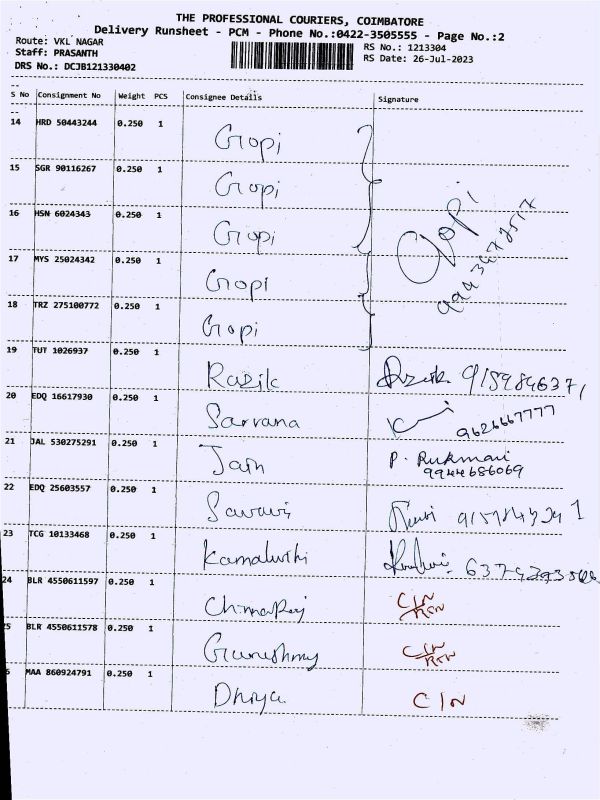 THE PROFESSIONAL COURIERS, COIMBATORE
Delivery Runsheet - PCM - Phone No.:0422-3505555 - Page No.:2
Route: VKL NAGAR
RS No.: 1213304
Staff: PRASANTH
RS Date: 26-Jul-2023
DRS No.: DCJB121330402
S No Consignment No Weight PCS Consignee Details Signature
14 HRD 50443244 0.250 1 Gopi
15 SGR 90116267 0.250 1 Gopi
16 HSN 6024343 0.250 1 Gopi
Gopi
17 MYS 25024342 0.250 1 Gopi
18 TRZ 275100772 0.250 1 Gopi
19 TUT 1026937 0.250 1 Razik
20 EDQ 16617930 0.250 1 Sarvana 9626667777
21 JAL 530275291 0.250 1 Jain P. Rukmani
9944686069
22 EDQ 25603557 0.250 1
23 TCG 10133468 0.250 1
24 BLR 4550611597 0.250 1 CIN
BLR 4550611578 0.250 1 CIN
MAA 860924791 0.250 1 Dhiya CIN